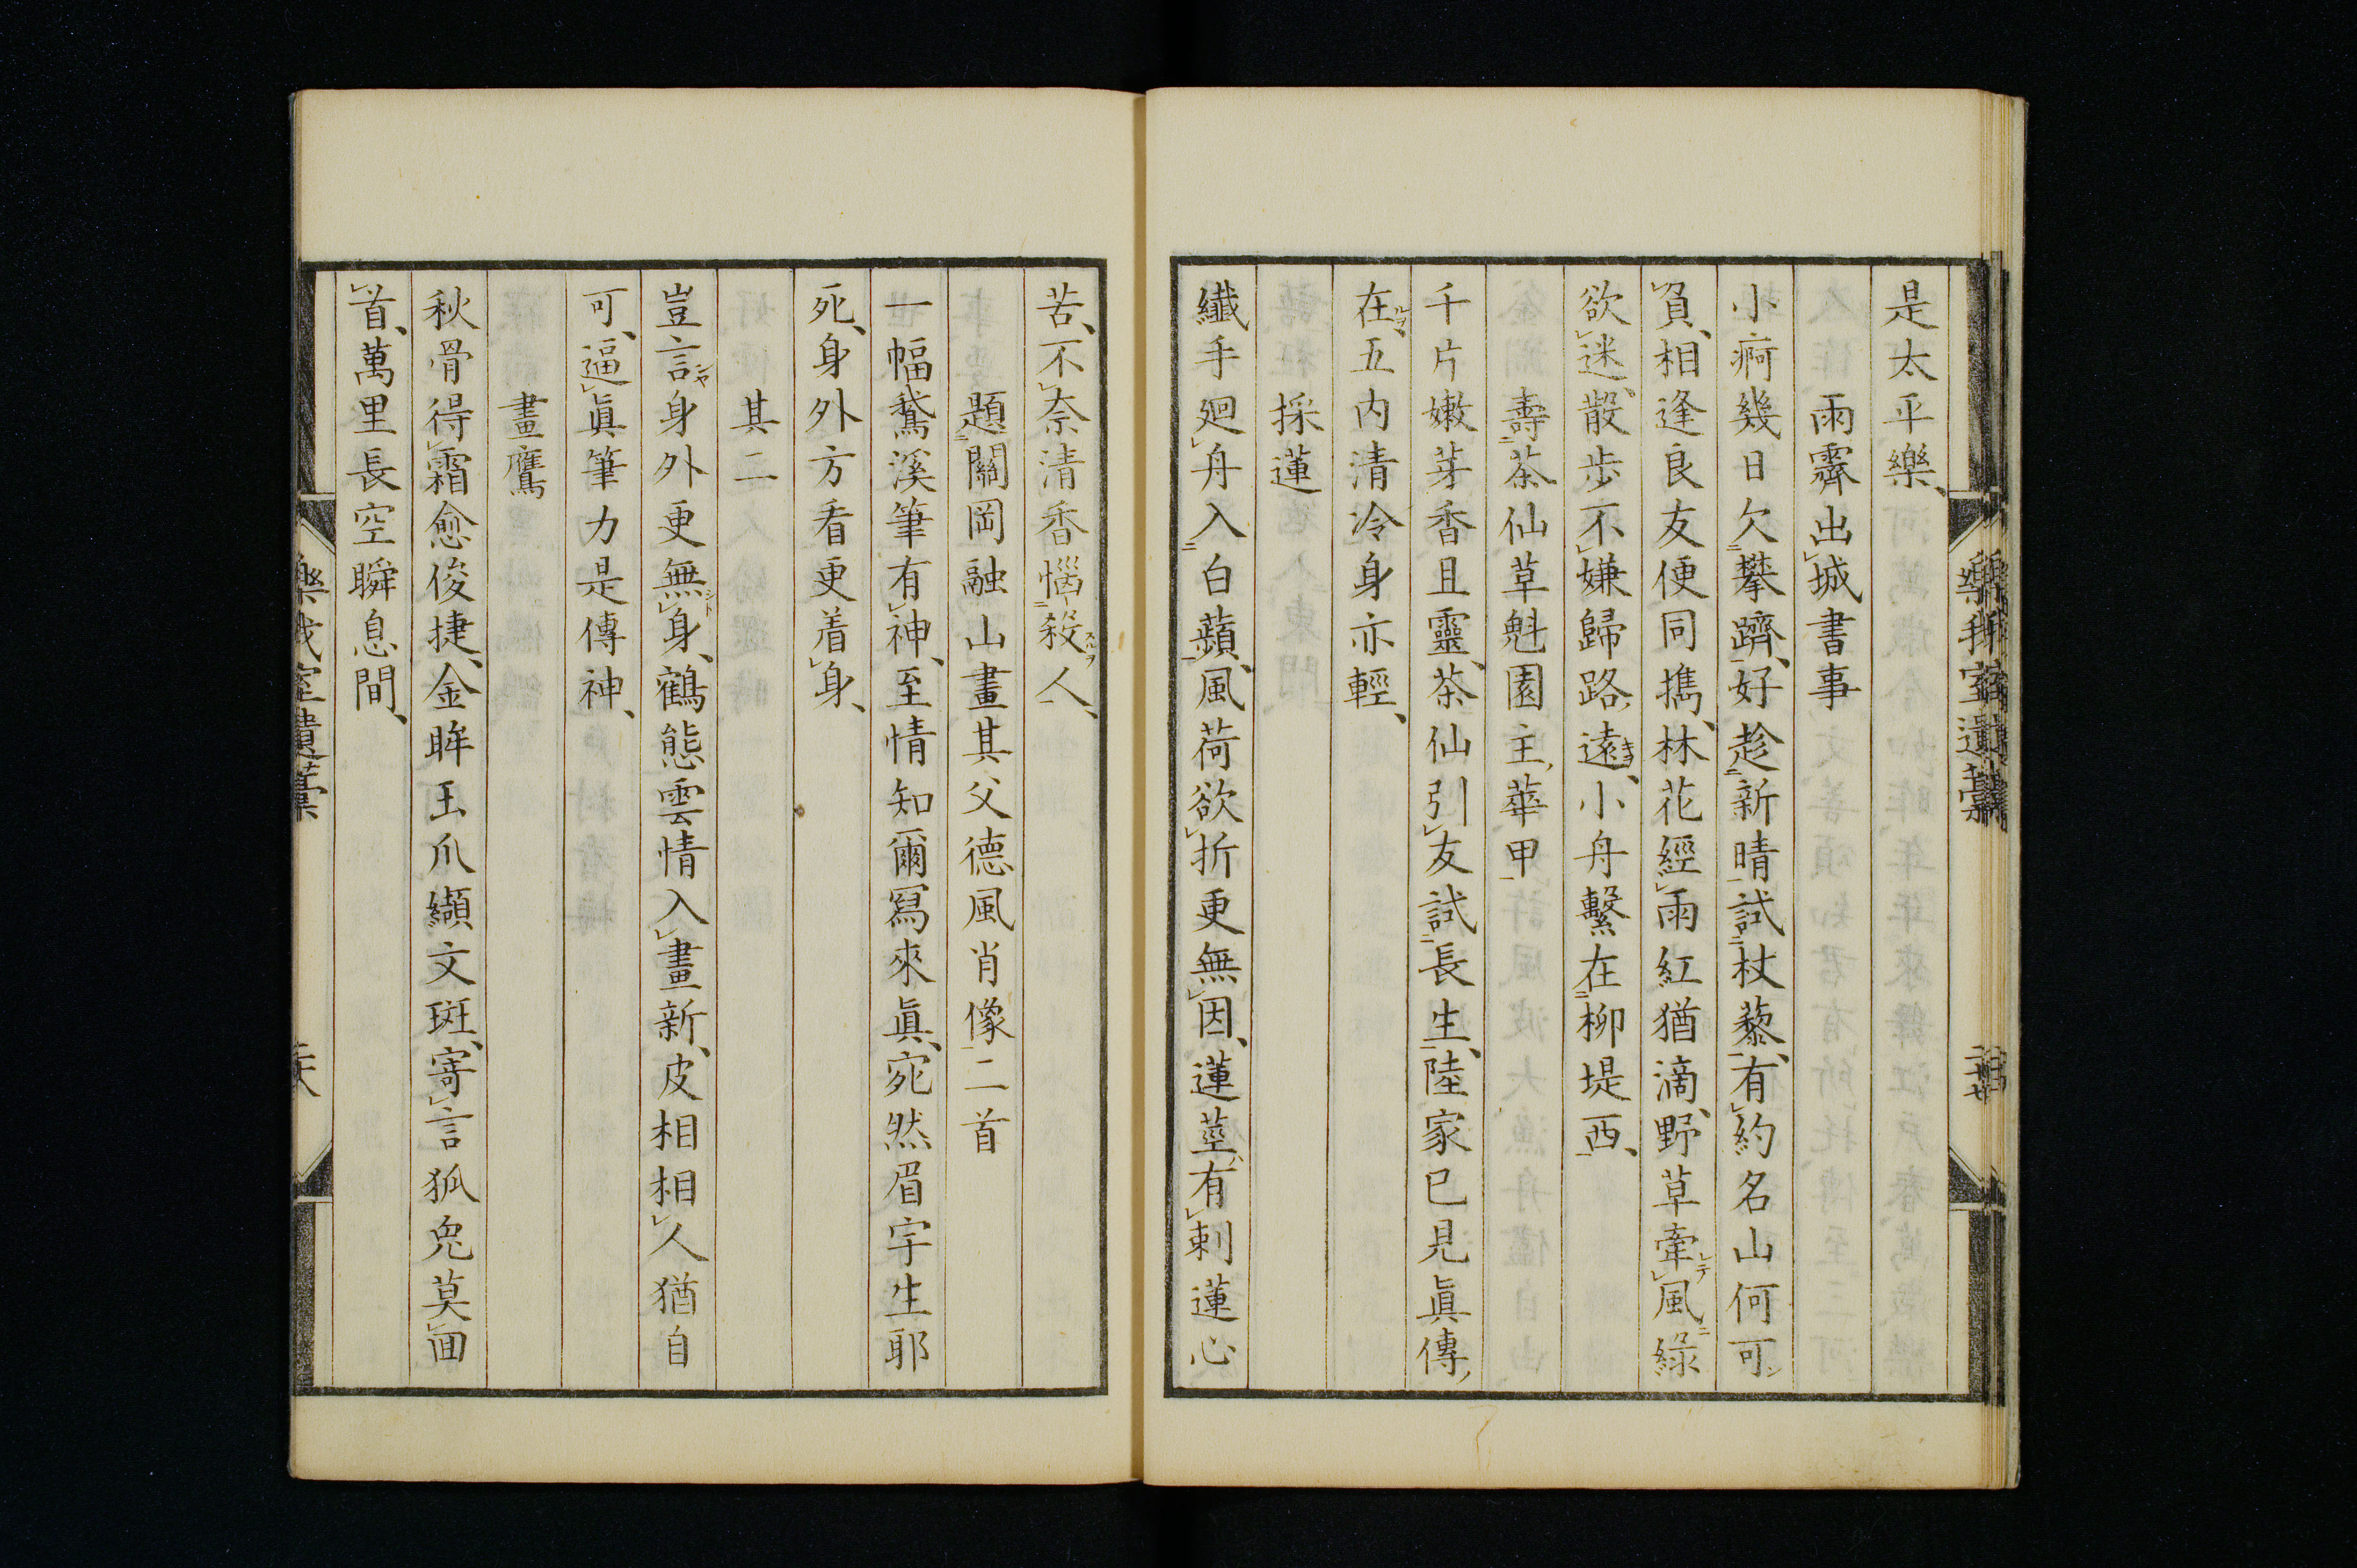 是太平樂、
雨霽出城書事
小痾幾日欠攀躋、好趁新晴試杖藜、有約名山何可
負、相逢良友便同攜、林花經雨紅猶滴、野草牽風綠
欲迷、散步不嫌歸路遠、小舟繫在柳堤西、
壽茶仙草魁園主華甲
千片嫩芽香且靈、茶仙引友試長生、陸家已見眞傳
在、五內清冷身亦輕、
採蓮
纖手廻舟入白蘋、風荷欲折更無因、蓮莖有刺蓮心
苦、不奈清香惱殺人、
題關岡融山畫其父德風肖像二首
一幅鵞溪筆有神、至情知爾寫來眞、宛然眉宇生耶
死、身外方看更着身、
其二
豈言身外更無身、鶴態雲情入畫新、皮相相人猶自
可、逼眞筆力是傳神、
畫鷹
秋骨得霜愈俊捷、金眸玉爪纈文斑、寄言狐兔莫回
首、萬里長空瞬息間、